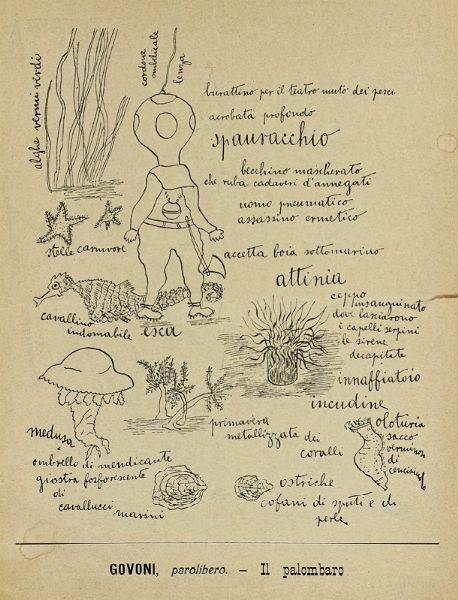 alghe vermi verdi
cordone
ombelicale
lenza
burattino per il teatro muto dei pesci
acrobata profondo
spauracchio
becchino mascherato
che ruba cadaveri d'annegati
uomo pneumatico
assassino ermetico
stelle carnivore
accetta boia sottomarino
attinia
ceppo
insanguinato
dove lasciarono
i capelli serpini
le sirene
decapitate
cavallino
indomabile
esca
innaffiatoio
incudine
medusa
ombrello di mendicante
giostra forforescente
di
cavallucci
marini
primavera
metallizzata dei
coralli
oloturia
sacco
di
ostriche
cofani di sputi e di
perle
GOVONI, parolibero. — Il palombaro